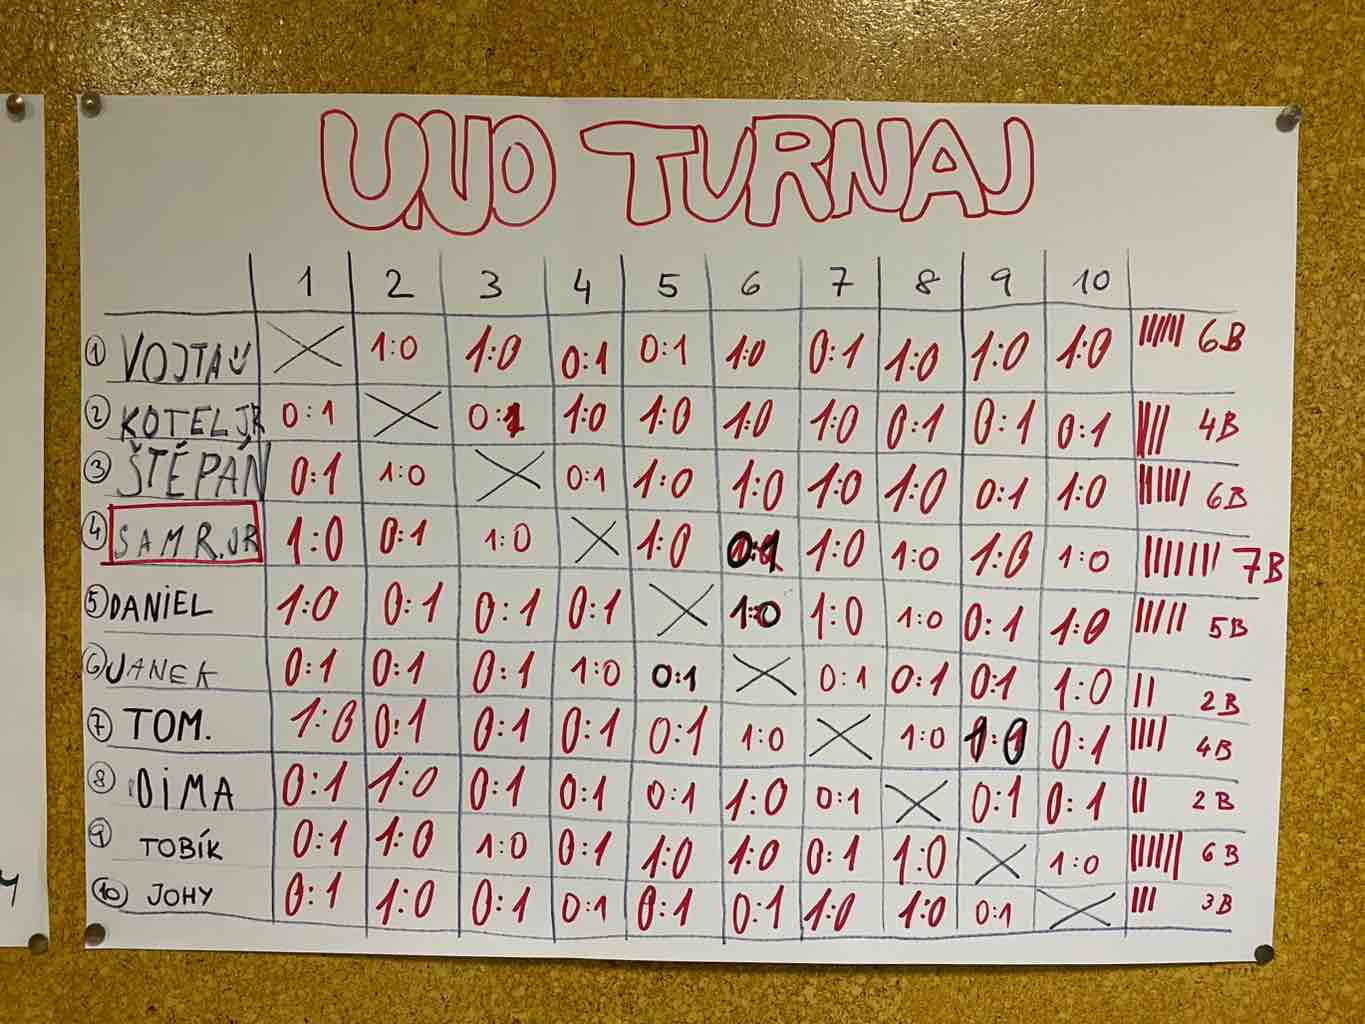 UNO TURNAJ
1 2 3 4 5 6 7 8 9 10
1 VOJTA 1:0 1:0 0:1 0:1 1:0 0:1 1:0 1:0 1:0 6B
2 KOTEL JR 0:1 0:1 1:0 1:0 1:0 1:0 0:1 0:1 0:1 4B
3 ŠTĚPÁN 0:1 1:0 0:1 1:0 1:0 1:0 1:0 0:1 1:0 6B
4 SAM R. JR 1:0 0:1 1:0 1:0 0:1 1:0 1:0 1:0 1:0 7B
5 DANIEL 1:0 0:1 0:1 0:1 1:0 1:0 1:0 0:1 1:0 5B
6 JANEK 0:1 0:1 0:1 1:0 0:1 0:1 0:1 0:1 1:0 2B
7 TOM. 1:0 0:1 0:1 0:1 0:1 1:0 1:0 1:0 0:1 4B
8 DIMA 0:1 1:0 0:1 0:1 0:1 1:0 0:1 0:1 0:1 2B
9 TOBÍK 0:1 1:0 1:0 0:1 1:0 1:0 0:1 1:0 1:0 6B
10 JOHY 0:1 1:0 0:1 0:1 0:1 0:1 1:0 1:0 0:1 3B